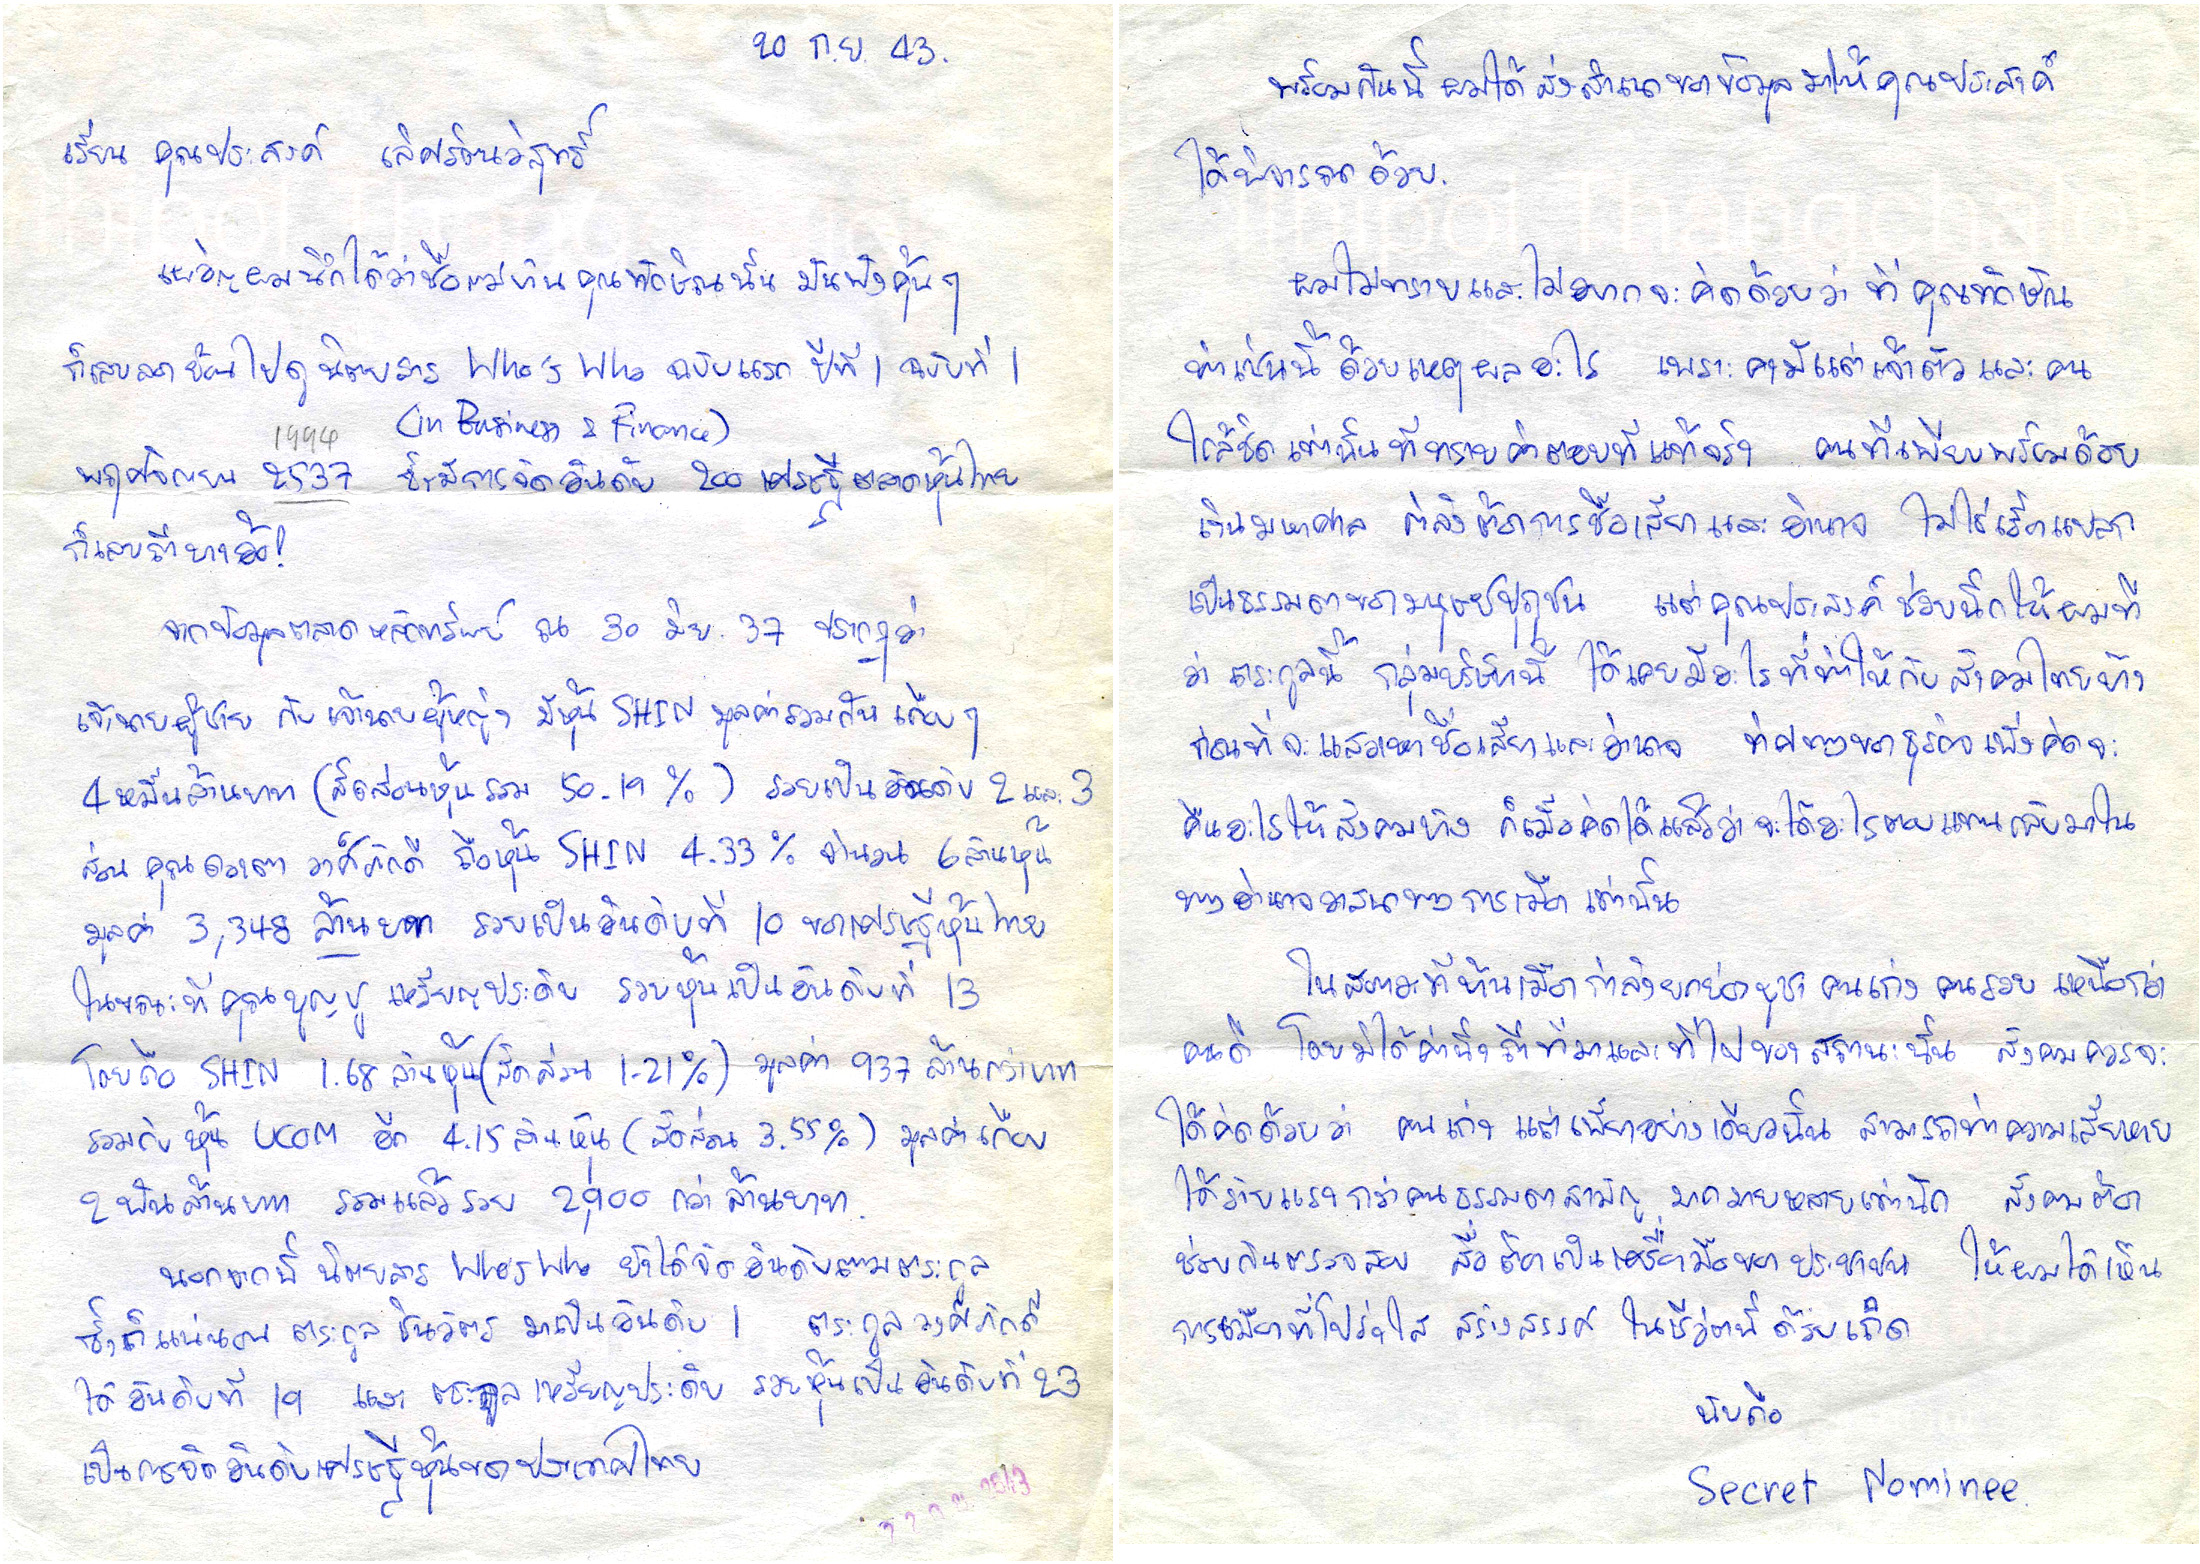 20 ก.ย. 43.
เรียน คุณประสงค์ เลิศรัตนวิสุทธิ์
เผอิญผมนึกได้ว่าชื่อแม่บ้านคุณทักษิณนั้น มันฟังคุ้นๆ
ก็เลยลองย้อนไปดูนิตยสาร Who's Who ฉบับแรก ปีที่ 1 ฉบับที่ 1
(in Business & Finance)
1994
พฤศจิกายน 2537 ซึ่งมีการจัดอันดับ 200 เศรษฐีตลาดหุ้นไทย
ก็เลยถึงบางอ้อ!
จากข้อมูลตลาดหลักทรัพย์ ณ 30 มิย. 37 ปรากฏว่า
เจ้านายผู้ชาย กับเจ้านายผู้หญิง มีหุ้น SHIN มูลค่ารวมกันเกือบๆ
4 หมื่นล้านบาท (สัดส่วนหุ้นรวม 50.19 %) รวยเป็นอันดับ 2 และ 3
ส่วน คุณดวงตา วงศ์ภักดี ถือหุ้น SHIN 4.33 % จำนวน 6 ล้านหุ้น
มูลค่า 3,348 ล้านบาท รวยเป็นอันดับที่ 10 ของเศรษฐีหุ้นไทย
ในขณะที่คุณบุญชู เหรียญประดับ รวยหุ้นเป็นอันดับที่ 13
โดยถือ SHIN 1.68 ล้านหุ้น (สัดส่วน 1.21%) มูลค่า 937 ล้านกว่าบาท
รวมกับ หุ้น UCOM อีก 4.15 ล้านหุ้น (สัดส่วน 3.55%) มูลค่าเกือบ
2 พันล้านบาท รวมแล้วรวย 2,900 กว่าล้านบาท.
นอกจากนี้ นิตยสาร Who's Who ยังได้จัดอันดับตามตระกูล
ซึ่งก็แน่นอน ตระกูล ชินวัตร มาเป็นอันดับ 1 ตระกูลวงศ์ภักดี
ได้อันดับที่ 19 และ ตระกูลเหรียญประดับ รวยหุ้นเป็นอันดับที่ 23
เป็นการจัดอันดับเศรษฐีหุ้นของประเทศไทย
พร้อมกันนี้ ผมได้ส่งสำเนาของข้อมูลมาให้คุณประสงค์
ได้พิจารณาด้วย.
ผมไม่ทราบและไม่อยากจะคิดด้วยว่า ที่คุณทักษิณ
ทำเช่นนี้ ด้วยเหตุผลอะไร เพราะคงมีแต่เจ้าตัวและคน
ใกล้ชิดเท่านั้นที่ทราบคำตอบที่แท้จริง คนที่เพียบพร้อมด้วย
เงินมหาศาล กำลังต้องการชื่อเสียงและอำนาจ ไม่ใช่เรื่องแปลก
เป็นธรรมดาของมนุษย์ปุถุชน แต่คุณประสงค์ช่วยนึกให้ผมที
ว่า ตระกูลนี้ กลุ่มบริษัทนี้ ได้เคยมีอะไรที่ทำให้กับสังคมไทยบ้าง
ก่อนที่จะแสวงหาชื่อเสียงและอำนาจ ทิศทางของธุรกิจเพิ่งคิดจะ
คืนอะไรให้สังคมบ้าง ก็เมื่อคิดได้แล้วว่าจะได้อะไรตอบแทนกลับมาใน
ทางอำนาจวาสนาทางการเมืองเท่านั้น
ในสภาวะที่บ้านเมืองกำลังยกย่องบูชา คนเก่ง คนรวย เหนือกว่า
คนดี โดยมิได้คำนึงถึงที่มาและที่ไปของสถานะนั้น สังคมควรจะ
ได้คิดด้วยว่า คนเก่ง แต่เพียงอย่างเดียวนั้น สามารถทำความเสียหาย
ได้ร้ายแรงกว่าคนธรรมดาสามัญ มากมายหลายเท่านัก สังคมต้อง
ช่วยกันตรวจสอบ สื่อต้องเป็นเครื่องมือของประชาชน ให้ผมได้เห็น
การเมืองที่โปร่งใส สร้างสรรค์ ในชีวิตนี้ด้วยเถิด
นับถือ
Secret Nominee.